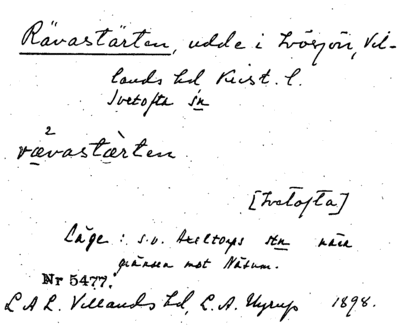 Rävastärten, udde i Ivösjön, Vil-
lands hd Krist. l.
Ivetofta sn
rævastærten
2
[Ivetofta]
Läge: s.v. Axeltorps stn nära
gränsen mot Näsum.
Nr 5477.
L A L. Villands hd, L. A. Uyrup 1898.